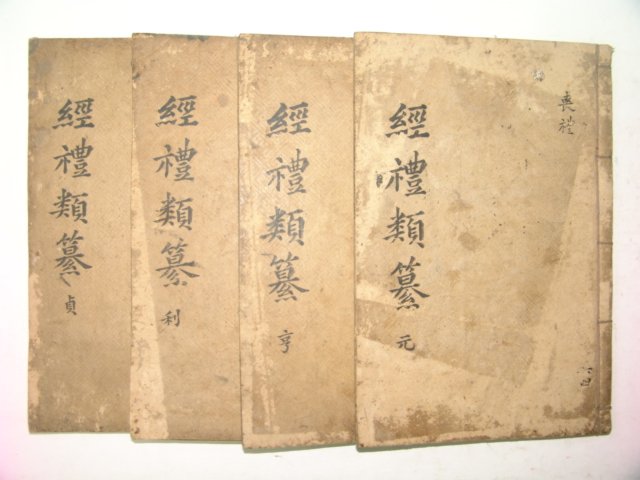 喪禮
經禮類纂 元
經禮類纂 亨
經禮類纂 利
經禮類纂 貞